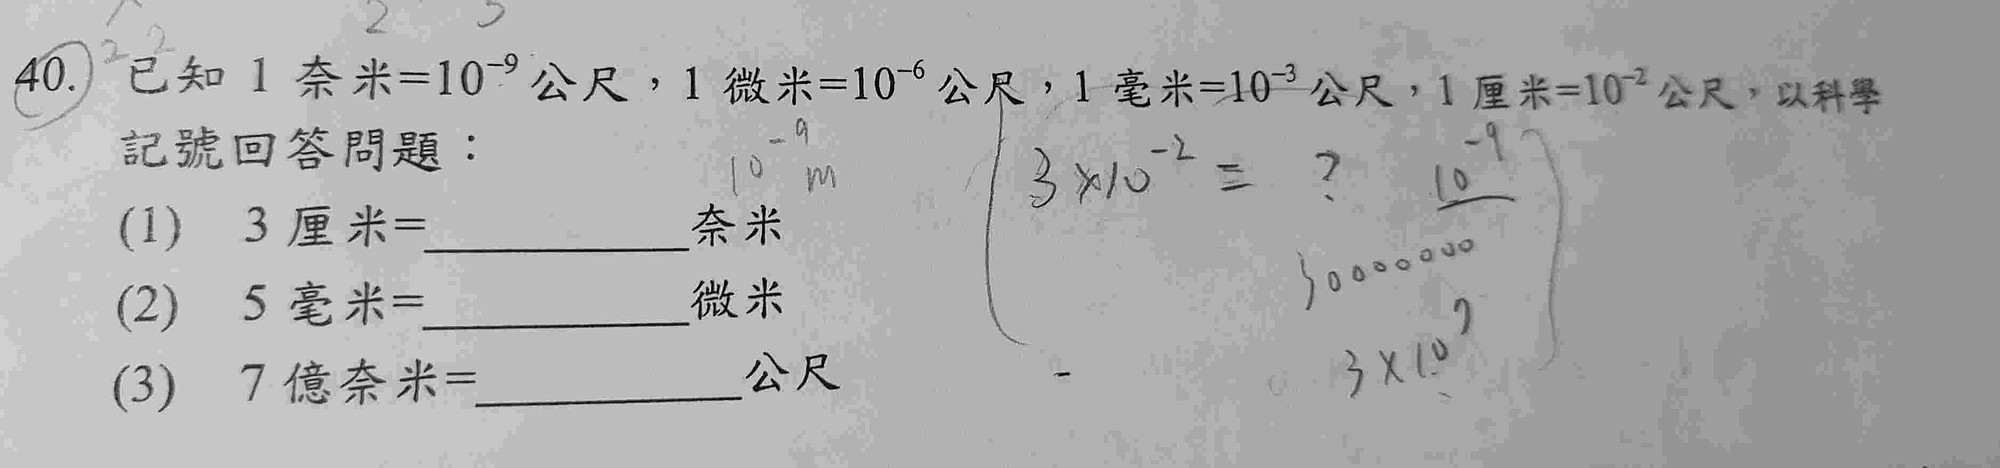 2
40. 已知 1 奈米=10⁻⁹ 公尺，1 微米=10⁻⁶ 公尺，1 毫米=10⁻³ 公尺，1 厘米=10⁻² 公尺，以科學
記號回答問題：
10⁻⁹ m
3×10⁻² = ? 10⁻⁹
(1) 3 厘米=__________奈米
30000000
(2) 5 毫米=__________微米
3×10⁷
(3) 7 億奈米=__________公尺